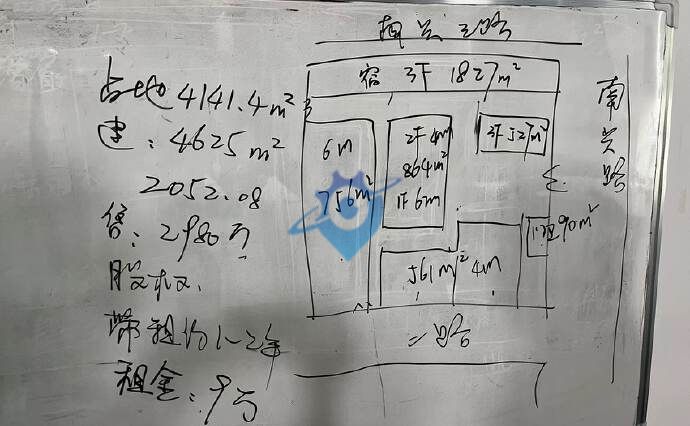 占地 4141.4m²
建: 4625m²
2052.08
售: 2980万
股权.
带租约1-2年
租金: 9万
南兴三路
宿 3F 1827m²
6m
756m²
2F 4m
864m²
1F 6m
3F 527m²
90m²
561m² 4m
二路
南兴路